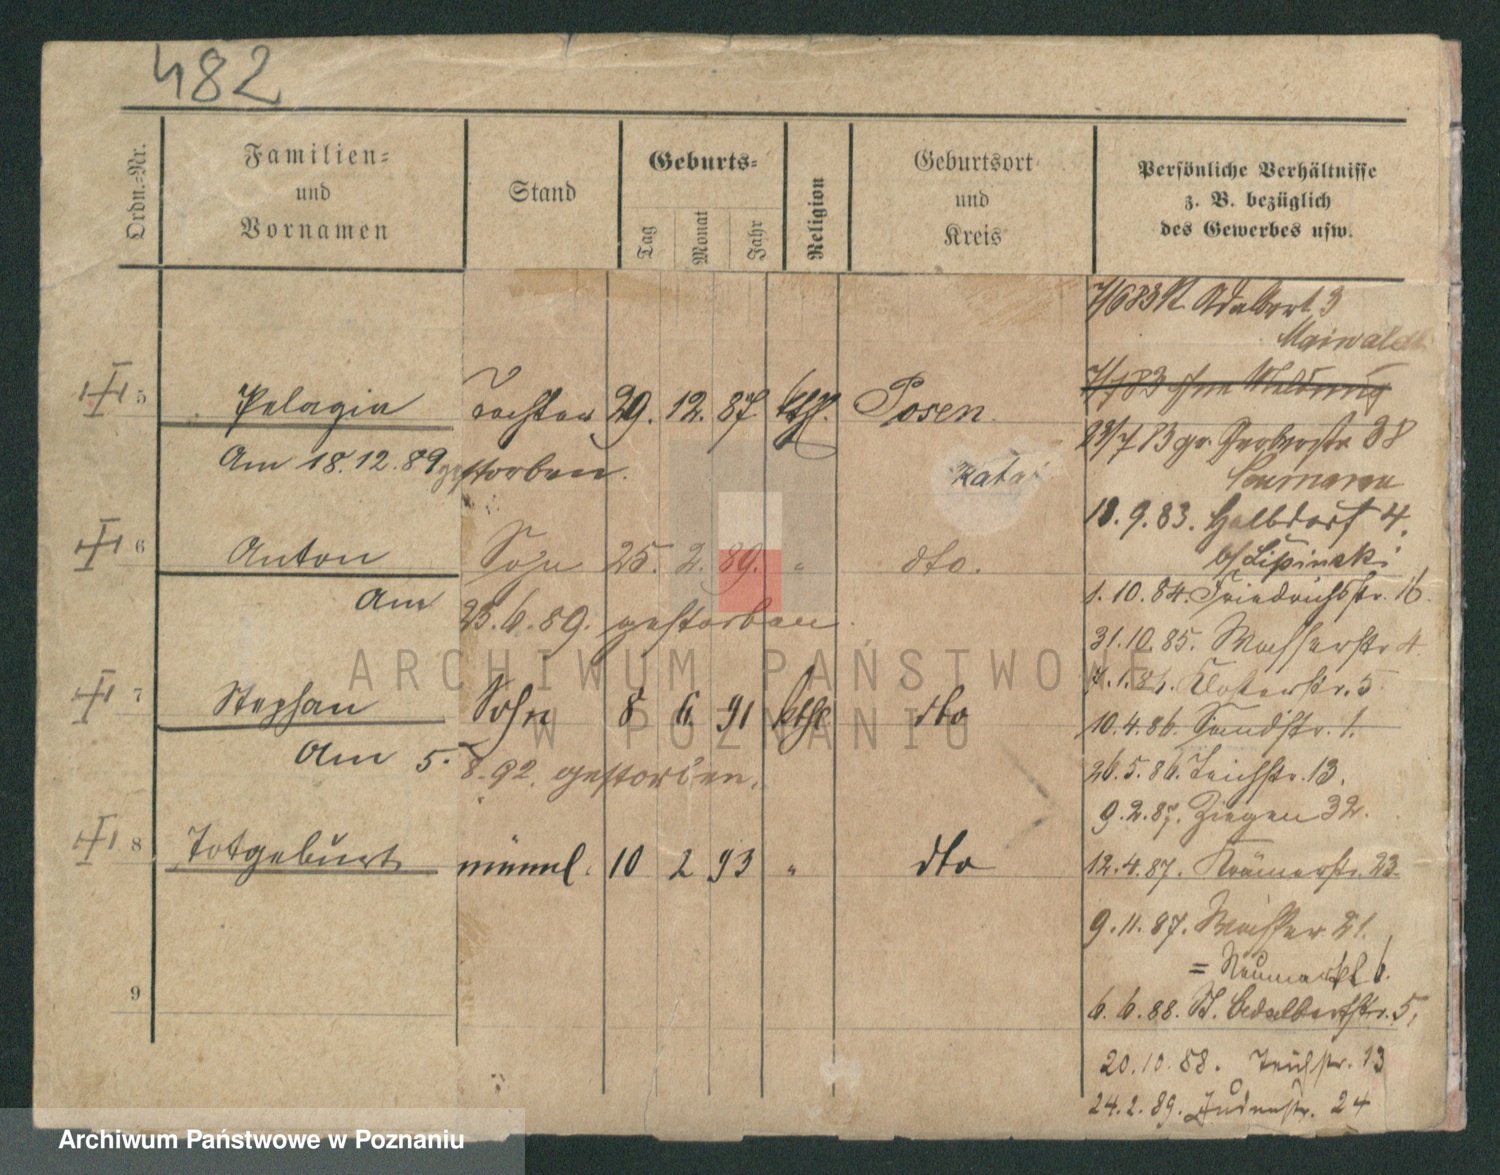 482
Ordn.-Nr.
Familien-
und
Vornamen
Stand
Geburts-
Tag
Monat
Jahr
Religion
Geburtsort
und
Kreis
Persönliche Verhältnisse
z. B. bezüglich
des Gewerbes usw.
7/6 83 St. Adalbert 3
Maiwald
5 Pelagia Tochter 29. 12. 87. kth. Posen.
Am 18.12.89 gestorben.
6 Anton Sohn 25. 2. 89. " dto.
Am 23.6.89. gestorben.
7 Stephan Sohn 8 6 91 kthl dto
Am 5. 8. 92. gestorben.
8 Totgeburt männl. 10 2 93 " dto
9
7/7 83 ohne Meldung
23/7 83 gr. Gerberstr 38
18. 9. 83. Halbdorf 4.
b/ Lipinski
1. 10. 84. Friedrichstr. 16.
31. 10. 85. Wasserstr 4.
7. 1. 86. Klosterstr. 5
10. 4. 86. Sandstr. 1.
26. 5. 86. Teichstr. 13.
9. 2. 87. Ziegen 32.
12. 4. 87. Krämerstr. 23.
9. 11. 87. Wasser 21.
= Neumarkt 6.
6. 6. 88. St. Adalbertstr. 5,
20. 10. 88. Teichstr. 13
24. 2. 89. Judenstr. 24
ARCHIWUM PAŃSTWOWE
W POZNANIU
Archiwum Państwowe w Poznaniu